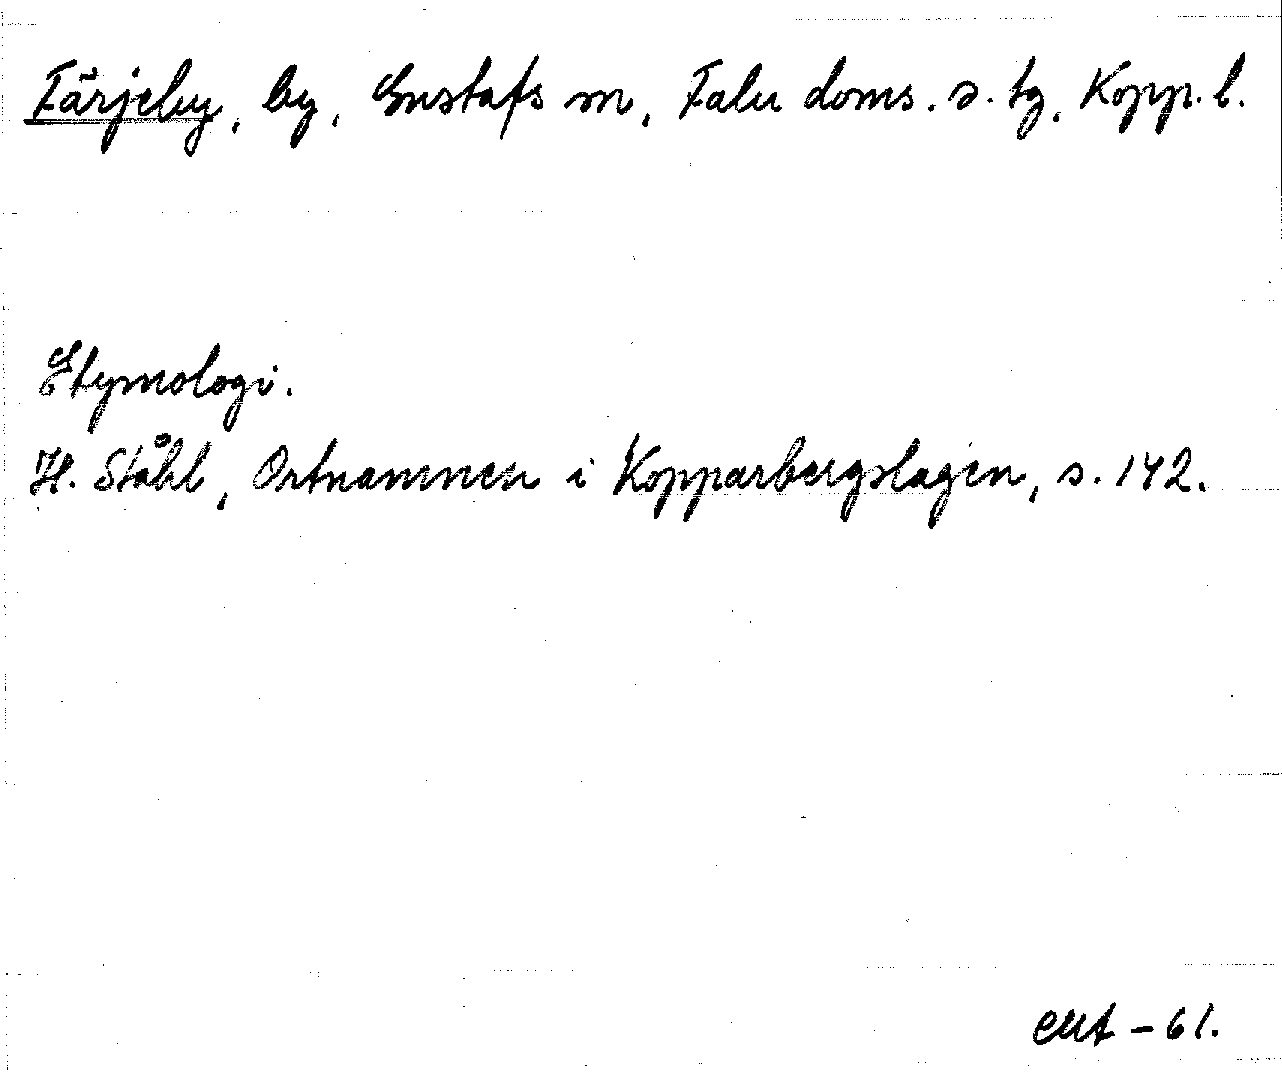 Färjeby, by, Gustafs sn, Falu doms. s. tg, Kopp. l.
Etymologi.
H. Ståhl, Ortnamnen i Kopparbergslagen, s. 142.
-61.